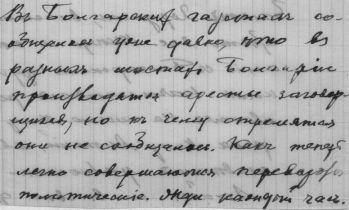 Въ Болгарскихъ газетахъ со-
общенно уже давно, что въ
разныхъ местахъ Болгаріи
производятся аресты заговор
щиковъ, но къ чему стремятся
они не сообщалось. Какъ теперь
легко совершаются перевороты
политическіе. Люди каждый часъ.